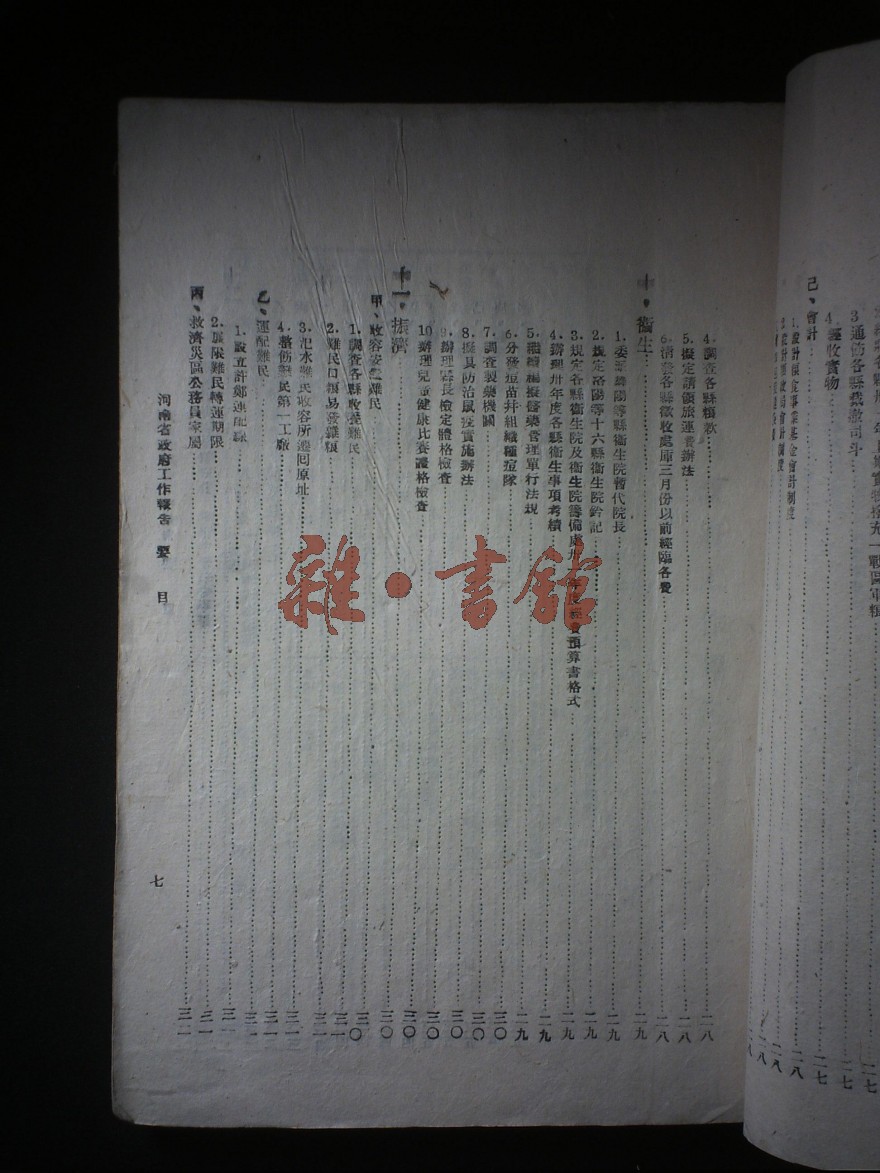 3. 通飭各縣裁撤司斗……二七
4. 經收實物……二七
己、會計……二七
4. 調查各縣積欵……二八
5. 擬定請領旅運費辦法……二八
6. 清查各縣徵收處庫三月份以前經臨各費……二八
十、衞生……二九
1. 委派舞陽等縣衞生院暫代院長……二九
2. 規定洛陽等十六縣衞生院鈐記……二九
3. 規定各縣衞生院及衞生院籌備處 預算書格式……二九
4. 辦理卅年度各縣衞生事項考績……二九
5. 繼續編擬醫藥管理單行法規……二九
6. 分發痘苗幷組織種痘隊……三〇
7. 調查製藥機關……三〇
8. 擬具防治鼠疫實施辦法……三〇
9. 辦理 長檢定體格檢查……三〇
10. 辦理兒童健康比賽體格檢查……三〇
十一、振濟……三〇
甲、收容安 難民……三〇
1. 調查各縣收 難民……三〇
2. 難民口糧易發雜糧……三一
3. 氾水難民收容所遷回原址……三一
4. 整飭難民第一工廠……三一
乙、運配難民……三一
1. 設立許鄭運配線……三一
2. 展限難民轉運期限……三一
丙、救濟災區公務員家屬……三二
河南省政府工作報告 要目
七
雜·書館